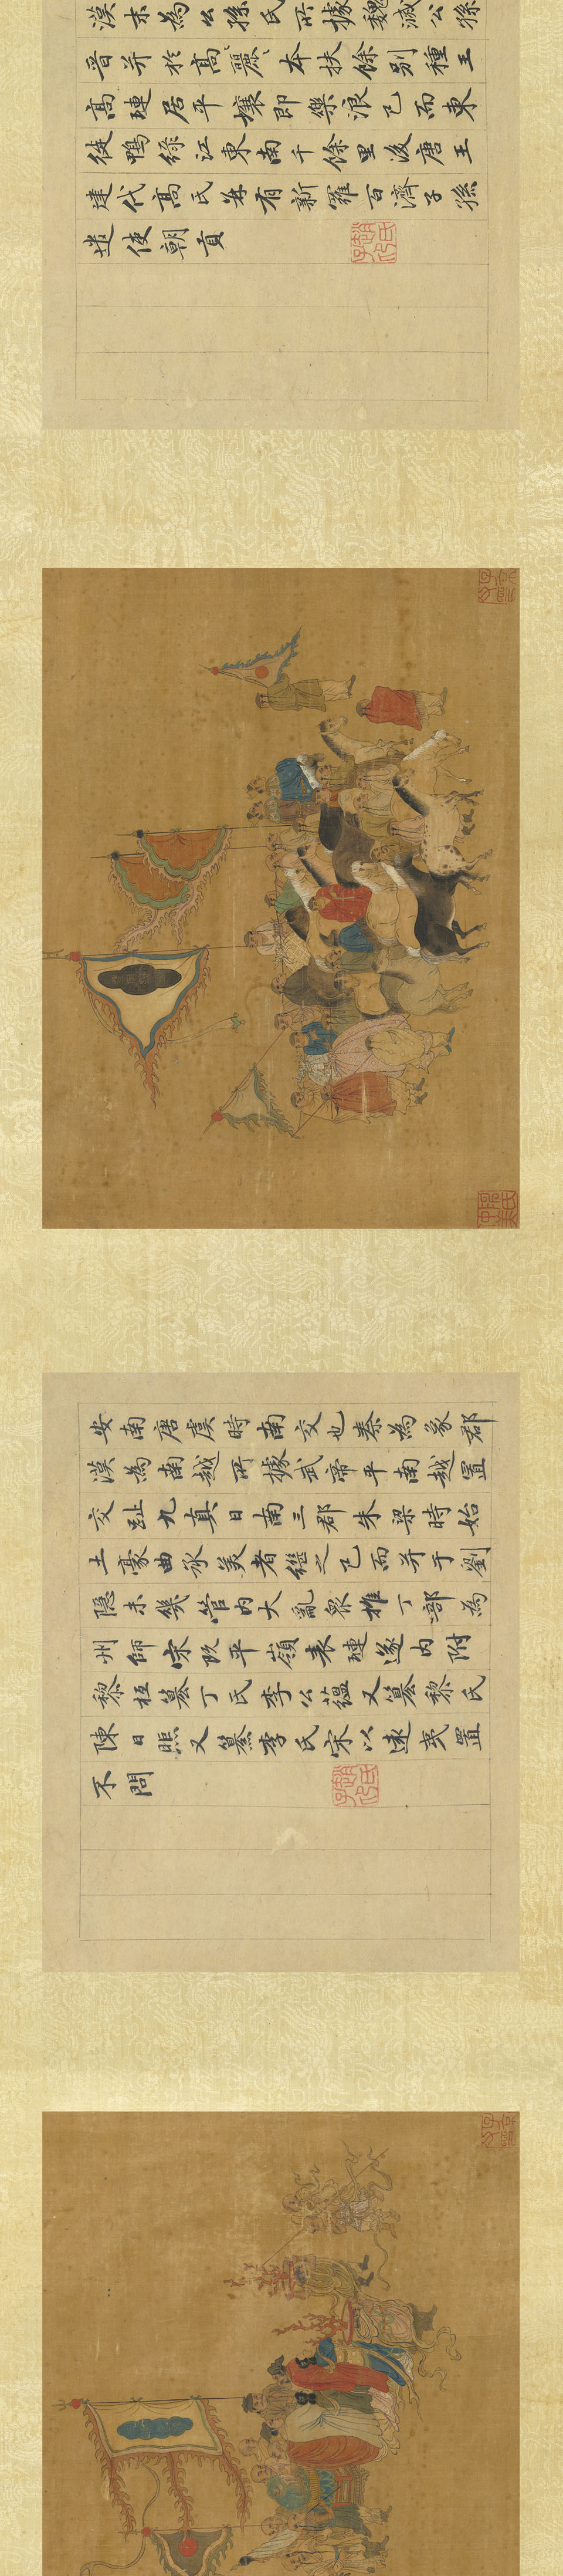 漢末為公孫氏所據魏滅公孫
晉并於高麗本扶餘別種王
高璉居平壤即樂浪已而東
徙鴨綠江東南千餘里後唐王
建代高氏并有新羅百濟子孫
遣使朝貢
安南唐虞時南交也秦為象郡
漢為南越所據武帝平南越置
交趾九真日南三郡朱梁時始
土豪曲承美者繼之已而并于劉
隱未幾管內大亂眾推丁部為
州師宋既平嶺表璉遂內附
黎桓篡丁氏李公蘊又篡黎氏
陳日又篡李氏宋以遠夷置
不問